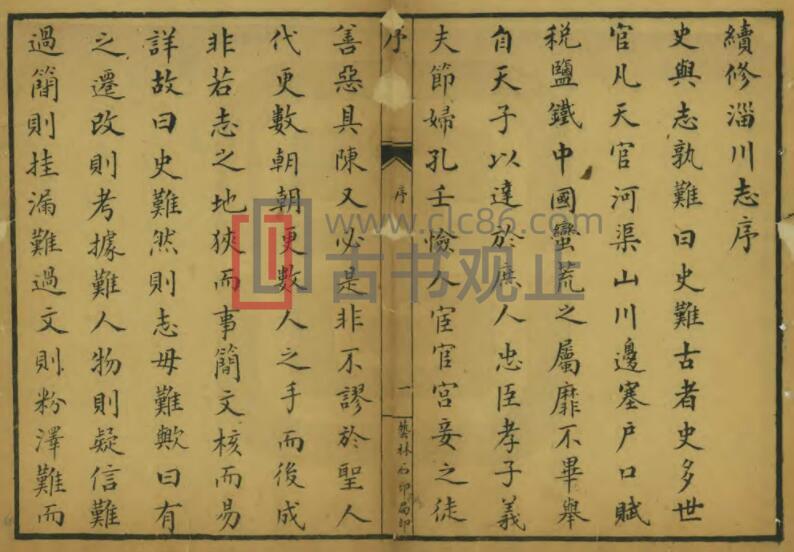 續修淄川志序
史與志孰難曰史難古者史多世
官凡天官河渠山川邊塞戶口賦
稅鹽鐵中國蠻荒之屬靡不畢舉
自天子以達於庶人忠臣孝子義
夫節婦孔壬憸人宦官宮妾之徒
序
序
一
藝林石印局印
善惡具陳又必是非不謬於聖人
代更數朝朝更數人之手而後成
非若志之地狹而事簡文核而易
詳故曰史難然則志毋難歟曰有
之遷改則考據難人物則疑信難
過簡則挂漏難過文則粉澤難而
www.clc86.com
古书观止